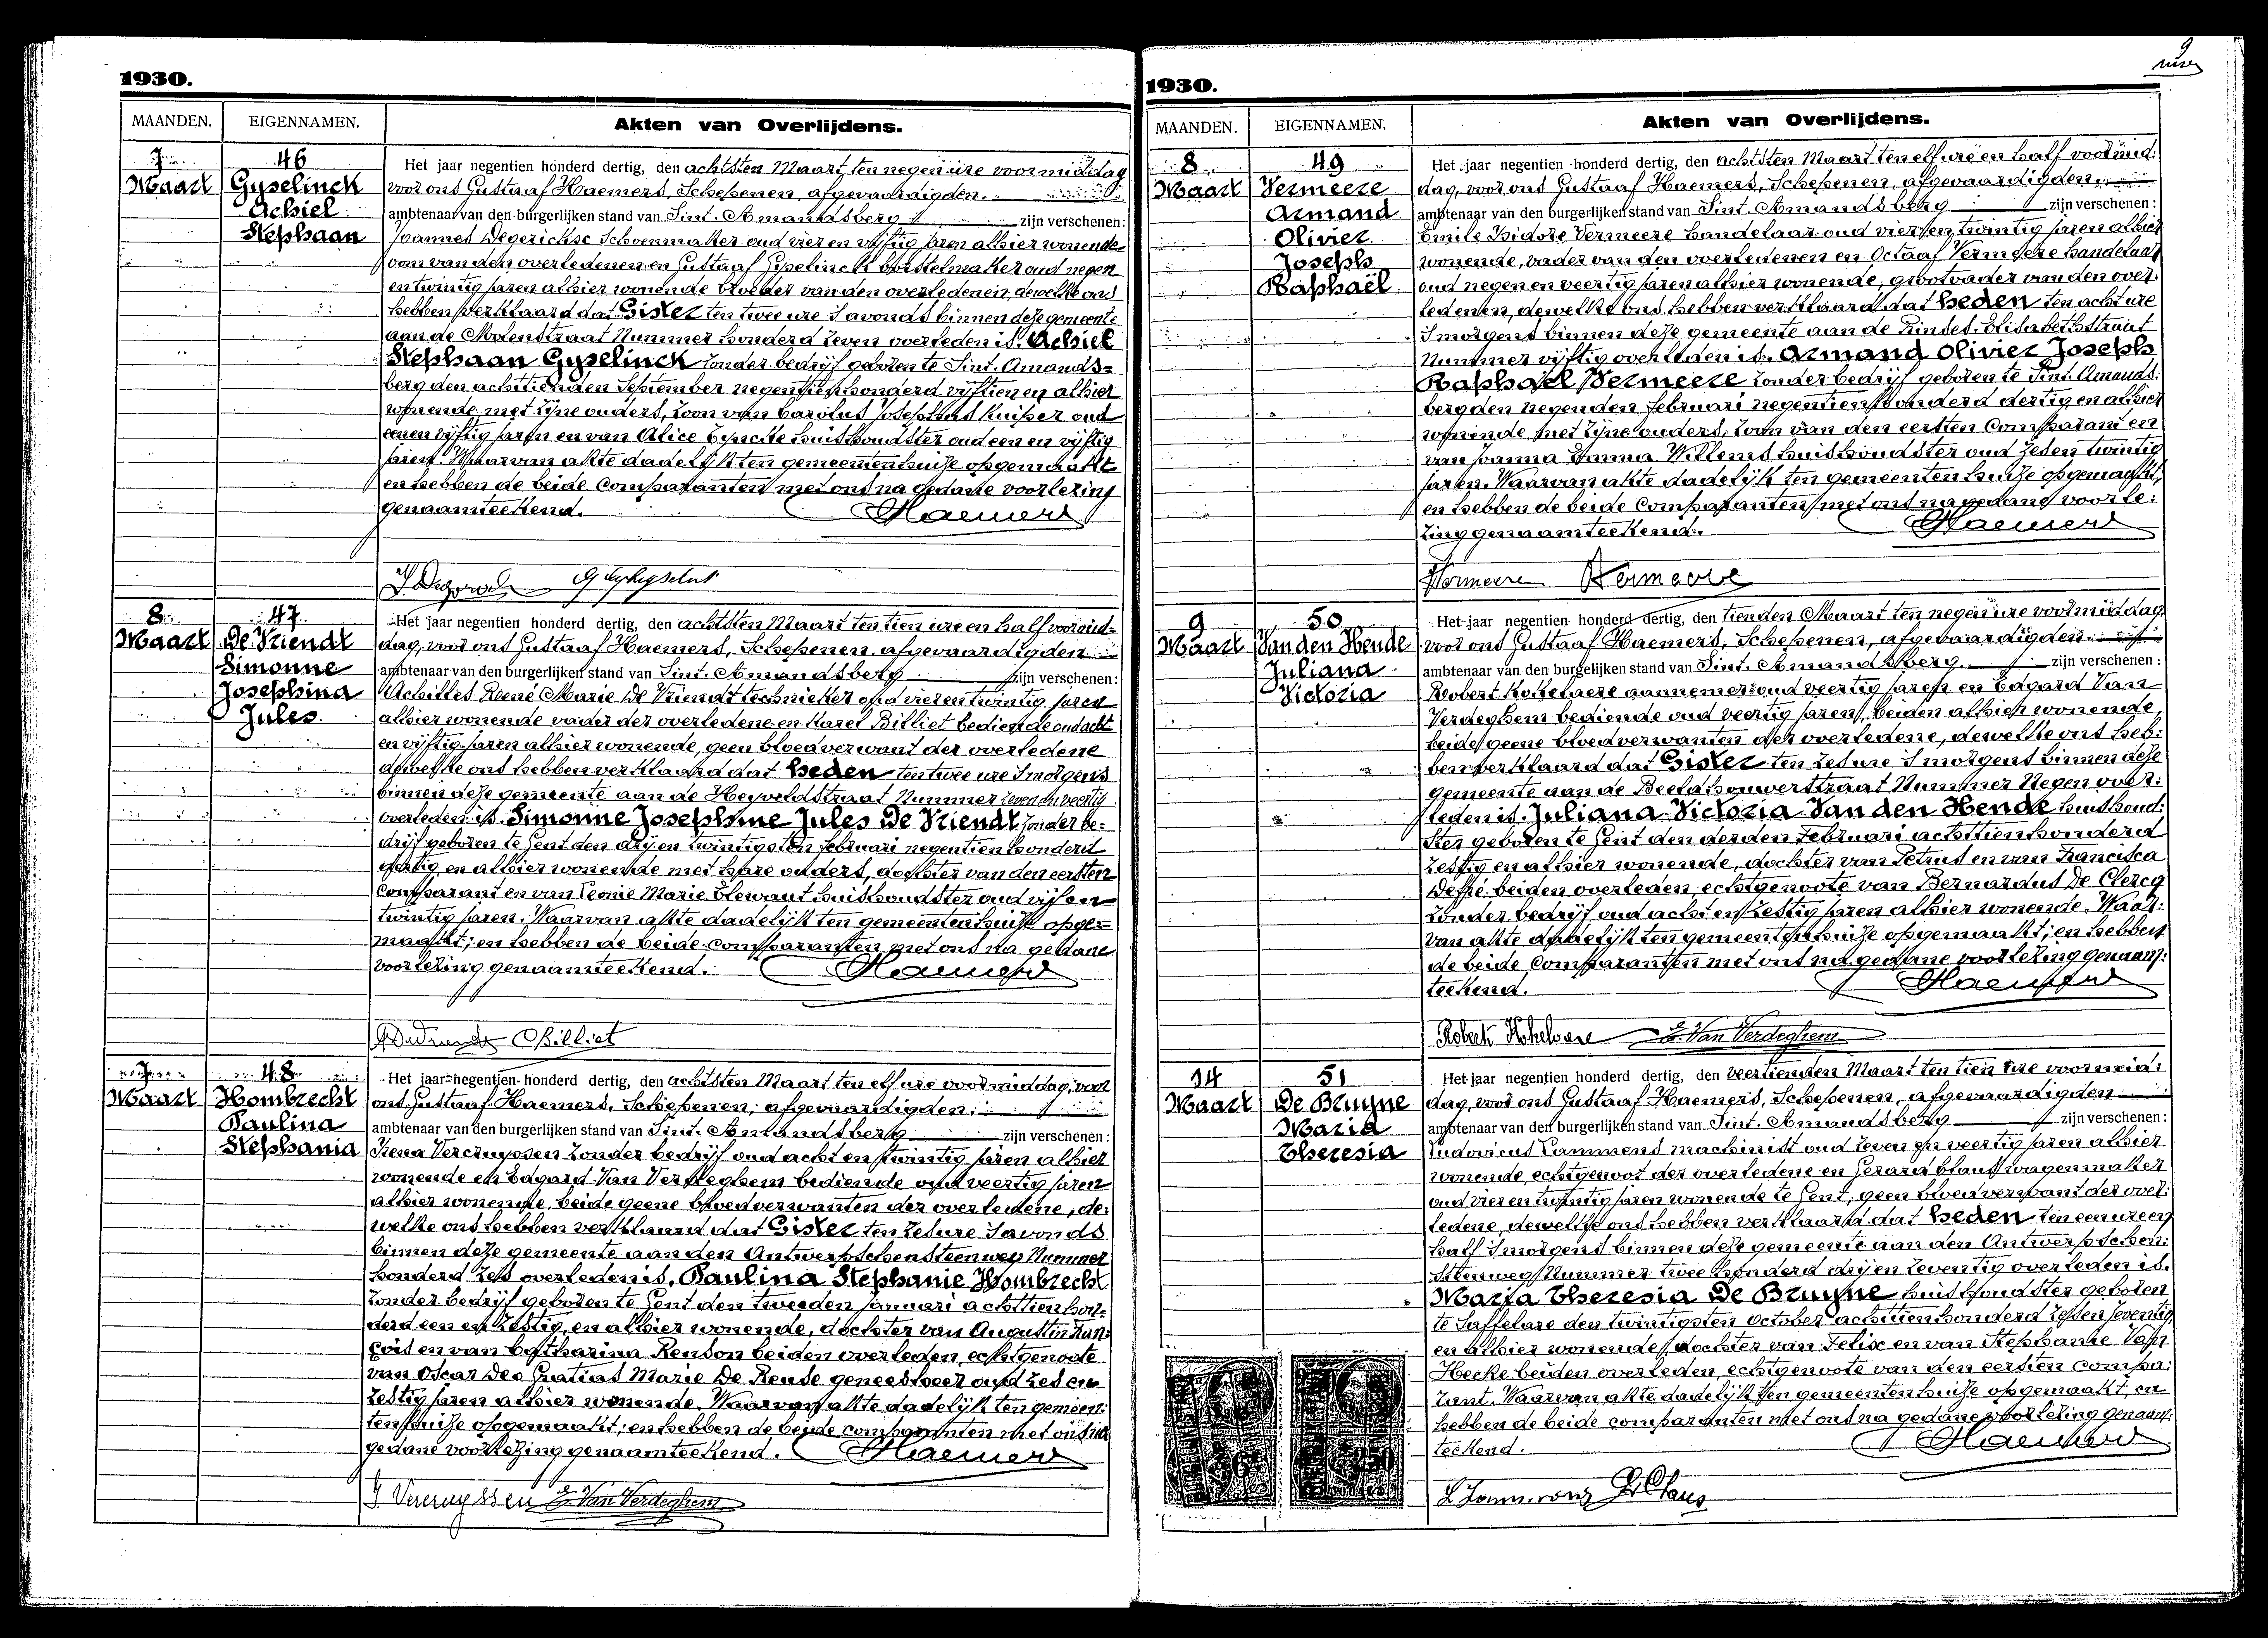 1930.
MAANDEN. EIGENNAMEN. Akten van Overlijdens.
7 46 Het jaar negentien honderd dertig, den achtsten Maart ten negen ure voormiddag
Maart Gyselinck voor ons Gustaaf Haemers, Schepenen, afgevaardigden
Achiel ambtenaar van den burgerlijken stand van Sint. Amandsberg zijn verschenen:
Stephaan Joannes Degerickse Schoenmaker oud vier en vijftig jaren alhier wonende
oom van den overledenen en Gustaaf Gyselinck borstelmaker oud negen
en twintig jaren alhier wonende broeder van den overledenen, dewelke ons
hebben verklaard dat Gister ten twee ure s'avonds binnen deze gemeente
aan de Molenstraat Nummer honderd zeven overleden is. Achiel
Stephaan Gyselinck zonder bedrijf geboren te Sint. Amands=
berg den achttienden September negentienhonderd vijftien en alhier
wonende met zijne ouders, zoon van Carolus Josephus Kuiper oud
een en vijftig jaren en van Alice huishoudster oud een en vijftig
jaren. Waarvan akte dadelijk ten gemeentenhuize opgemaakt
en hebben de beide Comparanten met ons na gedane voorlezing
genaamteekend. Haemers
8 47 Het jaar negentien honderd dertig, den achtsten Maart ten tien ure en half voormid=
Maart De Vriendt dag, voor ons Gustaaf Haemers, Schepenen, afgevaardigden
Simonne ambtenaar van den burgerlijken stand van Sint. Amandsberg zijn verschenen:
Josephina Achilles René Marie De Vriendt technieker oud vier en twintig jaren
Jules alhier wonende vader der overledene en Karel Billiet bediende oud acht
en vijftig jaren alhier wonende, geen bloedverwant der overledene
dewelke ons hebben verklaard dat heden ten twee ure s'morgens
binnen deze gemeente aan de Heyveldstraat Nummer zeven en veertig
overleden is Simonne Josephine Jules De Vriendt zonder be=
drijf geboren te Gent den drij en twintigsten februari negentienhonderd
dertig en alhier wonende met hare ouders, dochter van den eersten
Comparant en van Leonie Marie huishoudster oud vijf en
twintig jaren. Waarvan akte dadelijk ten gemeentenhuize opge=
maakt; en hebben de beide comparanten met ons na gedane
voorlezing genaamteekend. Haemers
Billiet
7 48 Het jaar negentien honderd dertig, den achtsten Maart ten elf ure voormiddag, voor
Maart Hombrecht ons Gustaaf Haemers, Schepenen, afgevaardigden
Paulina ambtenaar van den burgerlijken stand van Sint. Amandsberg zijn verschenen:
Stephania Irena Vercruyssen zonder bedrijf oud acht en twintig jaren alhier
wonende en Edgard Van Verdeghem bediende oud veertig jaren
alhier wonende, beide geene bloedverwanten der overledene, de:
welke ons hebben verklaard dat Gister ten zes ure s'avonds
binnen deze gemeente aan den Antwerpschensteenweg Nummer
honderd zes overleden is, Paulina Stephanie Hombrecht
zonder bedrijf geboren te Gent den tweeden januari achttienhon=
derd een en zestig, en alhier wonende, dochter van Augustin Fran:
çois en van Catharina Renson beiden overleden, echtgenoote
van Oscar Deo Gratias Marie De Reude geneesheer oud zes en
zestig jaren alhier wonende. Waarvan akte dadelijk ten gemeen:
tenhuize opgemaakt; en hebben de beide comparanten met ons na
gedane voorlezing genaamteekend. Haemers
I. Vercruyssen E. Van Verdeghem
9
1930.
MAANDEN. EIGENNAMEN. Akten van Overlijdens.
8 49 Het jaar negentien honderd dertig, den achtsten Maart ten elf ure en half voormid:
Maart Vermeere dag, voor ons Gustaaf Haemers, Schepenen, afgevaardigden
Armand ambtenaar van den burgerlijken stand van Sint. Amandsberg zijn verschenen:
Olivier Emile Isidore Vermeere handelaar oud vier en twintig jaren alhier
Joseph wonende, vader van den overledenen en Octaaf Vermeere handelaar
Raphaël oud negen en veertig jaren alhier wonende, grootvader van den over:
ledenen, dewelke ons hebben verklaard dat heden ten acht ure
s'morgens binnen deze gemeente aan de Elisabethstraat
Nummer vijftig overleden is. Armand Olivier Joseph
Raphaël Vermeere zonder bedrijf geboren te Sint. Amands:
berg den negenden februari negentienhonderd dertig en alhier
wonende met zijne ouders, zoon van den eersten Comparant en
van Joanna Emma Willems huishoudster oud zes en twintig
jaren. Waarvan akte dadelijk ten gemeentenhuize opgemaakt,
en hebben de beide Comparanten met ons na gedane voorle:
zing genaamteekend. Haemers
Vermeere Vermeere
9 50 Het jaar negentien honderd dertig, den tienden Maart ten negen ure voormiddag,
Maart Van den Hende voor ons Gustaaf Haemers, Schepenen, afgevaardigden
Juliana ambtenaar van den burgerlijken stand van Sint. Amandsberg zijn verschenen:
Victoria Robert Kokelaere aannemer oud veertig jaren en Edgard Van
Verdeghem bediende oud veertig jaren, beiden alhier wonende,
beide geene bloedverwanten der overledene, dewelke ons heb:
ben verklaard dat Gister ten zes ure s'morgens binnen deze
gemeente aan de Beeldhouwerstraat Nummer Negen over:
leden is. Juliana Victoria Van den Hende huishoud:
ster geboren te Gent den derden februari achttienhonderd
zestig en alhier wonende, dochter van Petrus en van Francisca
Defré beiden overleden, echtgenoote van Bernardus De Clercq
zonder bedrijf oud acht en zestig jaren alhier wonende. Waar:
van akte dadelijk ten gemeentenhuize opgemaakt; en hebben
de beide Comparanten met ons na gedane voorlezing genaam:
teekend. Haemers
Robert Kokelaere E. Van Verdeghem
14 51 Het jaar negentien honderd dertig, den veertienden Maart ten tien ure voormid:
Maart De Bruyne dag, voor ons Gustaaf Haemers, Schepenen, afgevaardigden
Maria ambtenaar van den burgerlijken stand van Sint. Amandsberg zijn verschenen:
Theresia Ludovicus Lammens machinist oud zeven en veertig jaren alhier
wonende, echtgenoot der overledene en Gerard Claus wagenmaker
oud vier en twintig jaren wonende te Gent, geen bloedverwant der over:
ledene, dewelke ons hebben verklaard dat heden ten een ure en
half s'morgens binnen deze gemeente aan den Antwerpschen:
steenweg Nummer twee honderd drij en zeventig overleden is.
Maria Theresia De Bruyne huishoudster geboren
te Saffelare den twintigsten October achttienhonderd zes en zeventig
en alhier wonende, dochter van Felix en van Stephanie Van
Hecke beiden overleden, echtgenoote van den eersten compa:
rant. Waarvan akte dadelijk ten gemeentenhuize opgemaakt, en
hebben de beide comparanten met ons na gedane voorlezing genaam:
teekend. Haemers
G. Claus